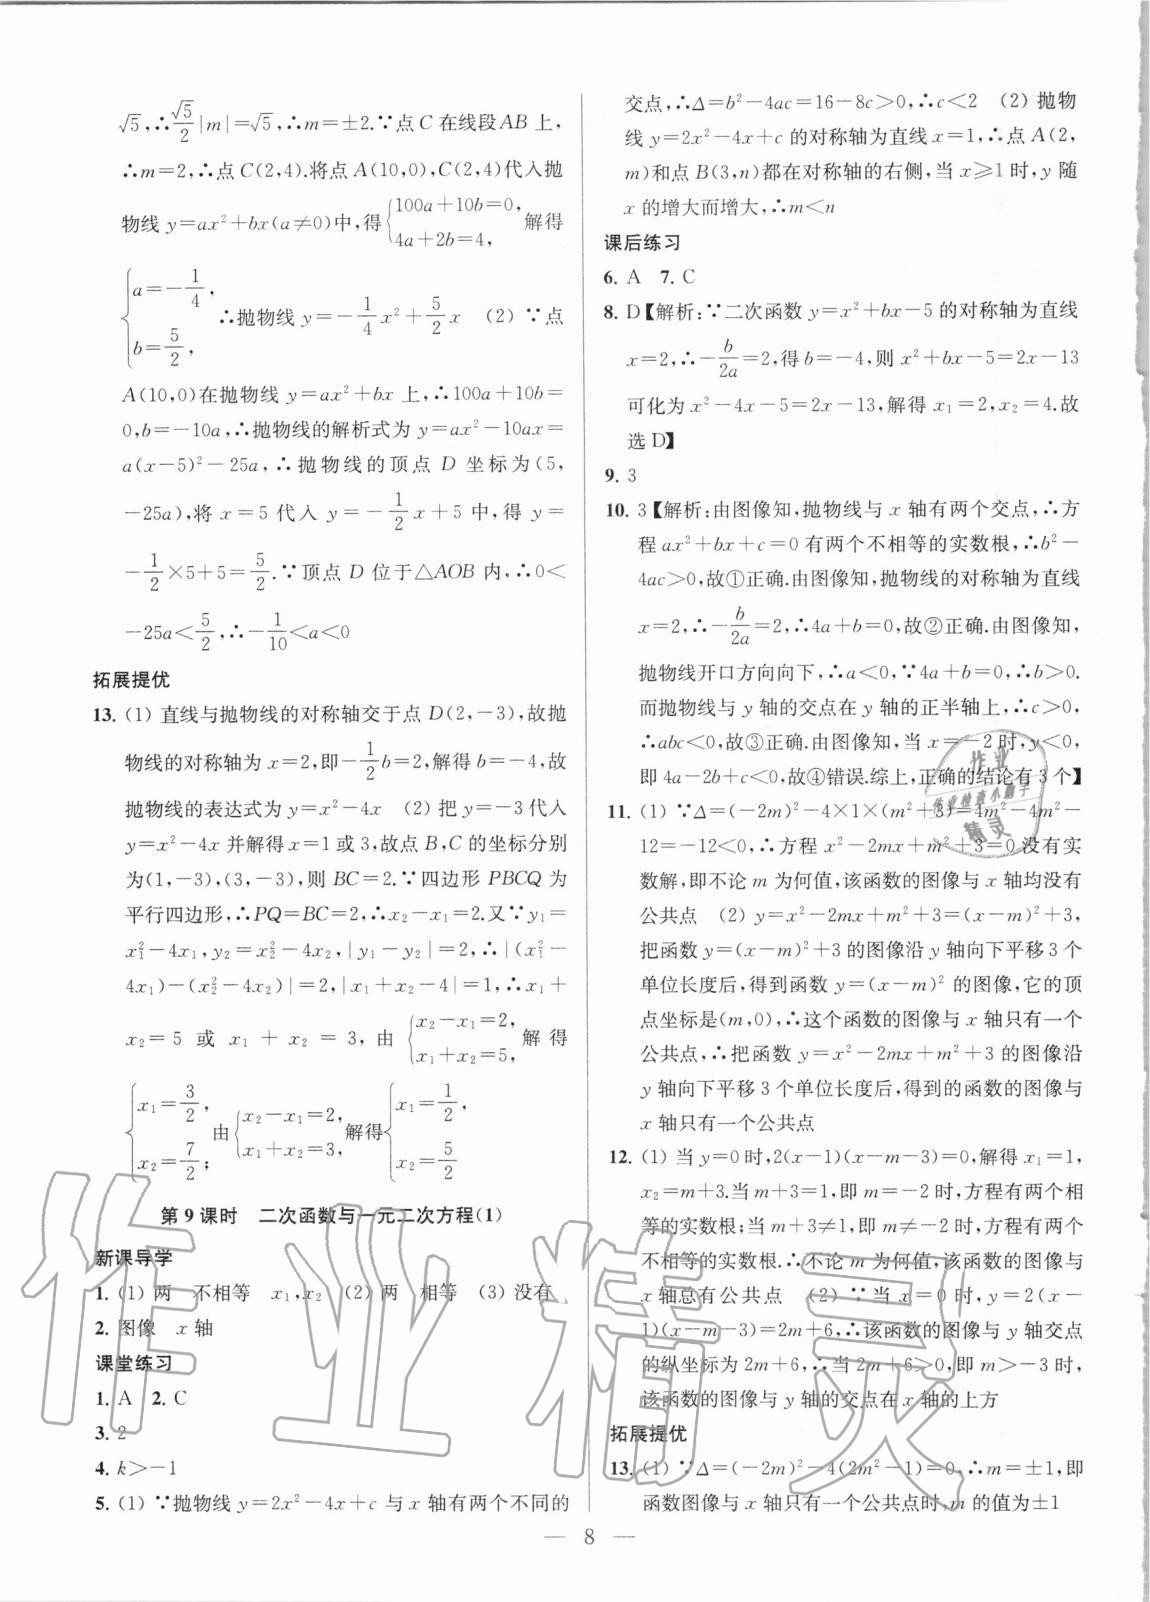 √5,∴√5/2|m|=√5,∴m=±2.∵点 C 在线段 AB 上,
∴m=2,∴点 C(2,4).将点 A(10,0),C(2,4)代入抛
物线 y=ax²+bx(a≠0)中,得{100a+10b=0, 4a+2b=4, 解得
{a=-1/4, b=5/2, ∴抛物线 y=-1/4x²+5/2x (2) ∵点
A(10,0)在抛物线 y=ax²+bx 上,∴100a+10b=
0,b=-10a,∴抛物线的解析式为 y=ax²-10ax=
a(x-5)²-25a,∴抛物线的顶点 D 坐标为(5,
-25a),将 x=5 代入 y=-1/2x+5 中,得 y=
-1/2×5+5=5/2.∵顶点 D 位于△AOB 内,∴0<
-25a<5/2,∴-1/10<a<0
拓展提优
13. (1) 直线与抛物线的对称轴交于点 D(2,-3),故抛
物线的对称轴为 x=2,即-1/2b=2,解得 b=-4,故
抛物线的表达式为 y=x²-4x (2) 把 y=-3 代入
y=x²-4x 并解得 x=1 或 3,故点 B,C 的坐标分别
为(1,-3),(3,-3),则 BC=2.∵四边形 PBCQ 为
平行四边形,∴PQ=BC=2,∴x₂-x₁=2.又∵y₁=
x₁²-4x₁,y₂=x₂²-4x₂,|y₁-y₂|=2,∴|(x₁²-
4x₁)-(x₂²-4x₂)|=2,|x₁+x₂-4|=1,∴x₁+
x₂=5 或 x₁+x₂=3,由{x₂-x₁=2, x₁+x₂=5, 解得
{x₁=3/2, x₂=7/2; 由{x₂-x₁=2, x₁+x₂=3, 解得{x₁=1/2, x₂=5/2
第 9 课时 二次函数与一元二次方程(1)
新课导学
1. (1) 两 不相等 x₁,x₂ (2) 两 相等 (3) 没有
2. 图像 x 轴
课堂练习
1. A 2. C
3. 2
4. k>-1
5. (1) ∵抛物线 y=2x²-4x+c 与 x 轴有两个不同的
交点,∴Δ=b²-4ac=16-8c>0,∴c<2 (2) 抛物
线 y=2x²-4x+c 的对称轴为直线 x=1,∴点 A(2,
m)和点 B(3,n)都在对称轴的右侧,当 x≥1 时,y 随
x 的增大而增大,∴m<n
课后练习
6. A 7. C
8. D【解析:∵二次函数 y=x²+bx-5 的对称轴为直线
x=2,∴-b/2a=2,得 b=-4,则 x²+bx-5=2x-13
可化为 x²-4x-5=2x-13,解得 x₁=2,x₂=4.故
选 D】
9. 3
10. 3【解析:由图像知,抛物线与 x 轴有两个交点,∴方
程 ax²+bx+c=0 有两个不相等的实数根,∴b²-
4ac>0,故①正确.由图像知,抛物线的对称轴为直线
x=2,∴-b/2a=2,∴4a+b=0,故②正确.由图像知,
抛物线开口方向向下,∴a<0,∵4a+b=0,∴b>0.
而抛物线与 y 轴的交点在 y 轴的正半轴上,∴c>0,
∴abc<0,故③正确.由图像知,当 x=-2 时,y<0,
即 4a-2b+c<0,故④错误.综上,正确的结论有 3 个】
11. (1) ∵Δ=(-2m)²-4×1×(m²+3)=4m²-4m²-
12=-12<0,∴方程 x²-2mx+m²+3=0 没有实
数解,即不论 m 为何值,该函数的图像与 x 轴均没有
公共点 (2) y=x²-2mx+m²+3=(x-m)²+3,
把函数 y=(x-m)²+3 的图像沿 y 轴向下平移 3 个
单位长度后,得到函数 y=(x-m)² 的图像,它的顶
点坐标是(m,0),∴这个函数的图像与 x 轴只有一个
公共点,∴把函数 y=x²-2mx+m²+3 的图像沿
y 轴向下平移 3 个单位长度后,得到的函数的图像与
x 轴只有一个公共点
12. (1) 当 y=0 时,2(x-1)(x-m-3)=0,解得 x₁=1,
x₂=m+3.当 m+3=1,即 m=-2 时,方程有两个相
等的实数根;当 m+3≠1,即 m≠-2 时,方程有两个
不相等的实数根.∴不论 m 为何值,该函数的图像与
x 轴总有公共点 (2) ∵当 x=0 时,y=2(x-
1)(x-m-3)=2m+6,∴该函数的图像与 y 轴交点
的纵坐标为 2m+6,∴当 2m+6>0,即 m>-3 时,
该函数的图像与 y 轴的交点在 x 轴的上方
拓展提优
13. (1) ∵Δ=(-2m)²-4(2m²-1)=0,∴m=±1,即
函数图像与 x 轴只有一个公共点时,m 的值为±1
— 8 —
作业精灵
作业
作业检查小助手
精灵